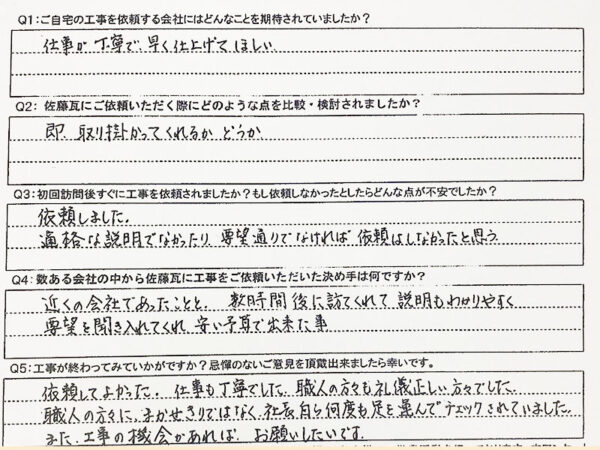 Q1:ご自宅の工事を依頼する会社にはどんなことを期待されていましたか?
仕事が丁寧で、早く仕上げてほしい
Q2: 佐藤瓦にご依頼いただく際にどのような点を比較・検討されましたか?
即、取り掛かってくれるかどうか
Q3:初回訪問後すぐに工事を依頼されましたか?もし依頼しなかったとしたらどんな点が不安でしたか?
依頼しました。
適格な説明でなかったり、要望通りでなければ依頼はしなかったと思う
Q4:数ある会社の中から佐藤瓦に工事をご依頼いただいた決め手は何ですか?
近くの会社であったことと、数時間後に訪てくれて説明もわかりやすく
要望を聞き入れてくれ安い予算で出来た事
Q5:工事が終わってみていかがですか?忌憚のないご意見を頂戴出来ましたら幸いです。
依頼してよかった。仕事も丁寧でした。職人の方々も礼儀正しい方々でした。
職人の方々に、まかせきりではなく、社長自ら何度も足を運んでチェックされていました。
また、工事の機会があれば、お願いしたいです。